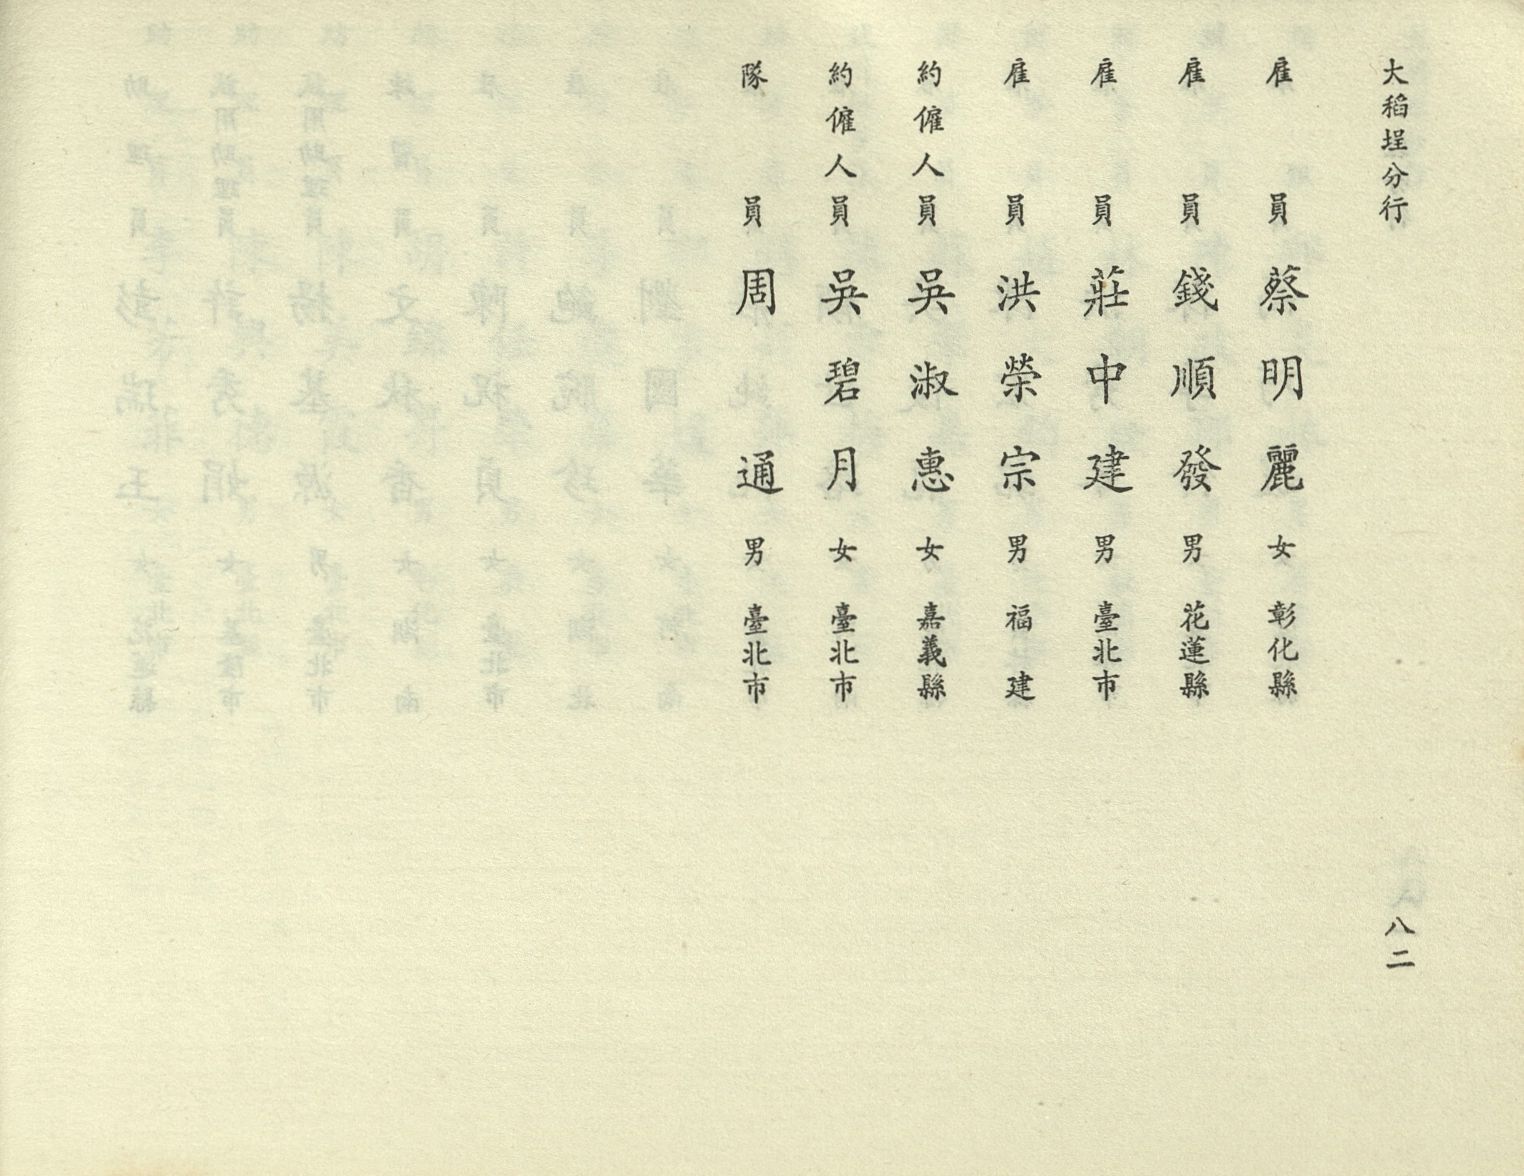 大稻埕分行
八二
雇員 蔡明麗 女 彰化縣
雇員 錢順發 男 花蓮縣
雇員 莊中建 男 臺北市
雇員 洪榮宗 男 福建
約僱人員 吳淑惠 女 嘉義縣
約僱人員 吳碧月 女 臺北市
隊員 周通 男 臺北市